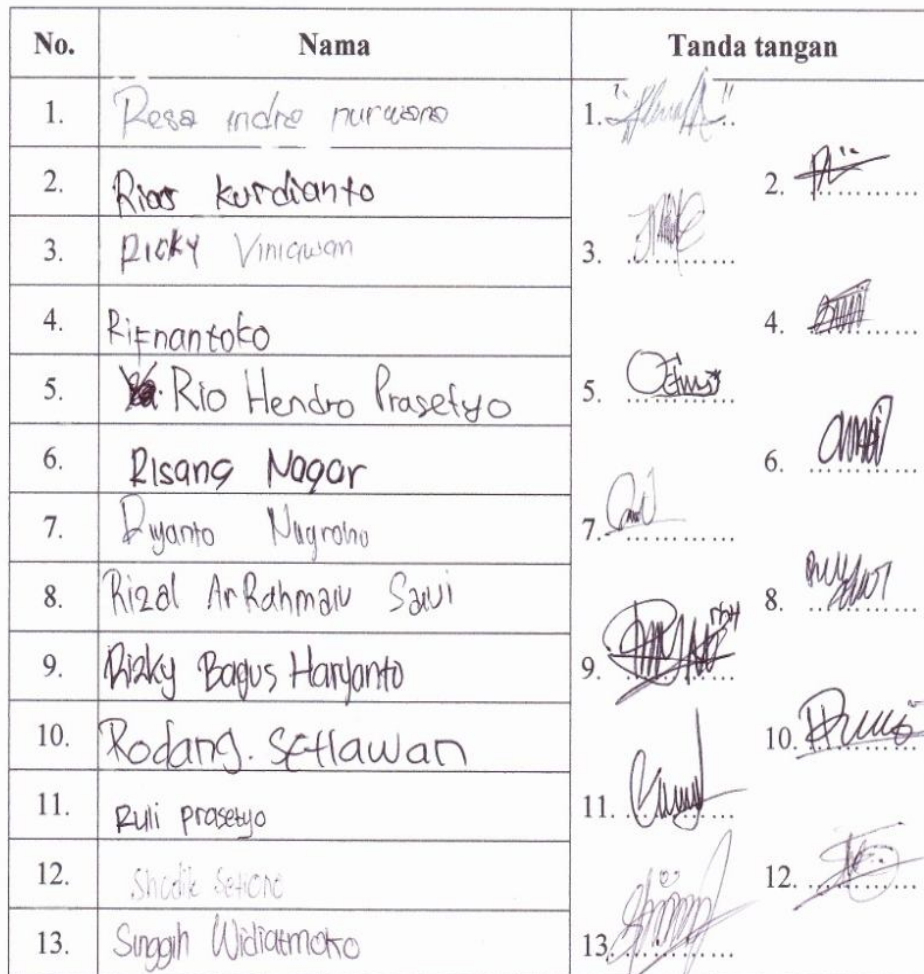 No. Nama Tanda tangan
1. Resa indra purwana 1.
2. Rias kurdianto 2.
3. Ricky Viniawan 3.
4. Rifnantoko 4.
5. Rio Hendro Prasetyo 5.
6. Risang Nagar 6.
7. Riyanto Nugroho 7.
8. Rizal ArRahman Sawi 8.
9. Rizky Bagus Haryanto 9.
10. Rodang. Setiawan 10.
11. Ruli prasetyo 11.
12. Shodik Setiono 12.
13. Singgih Widiatmoko 13.